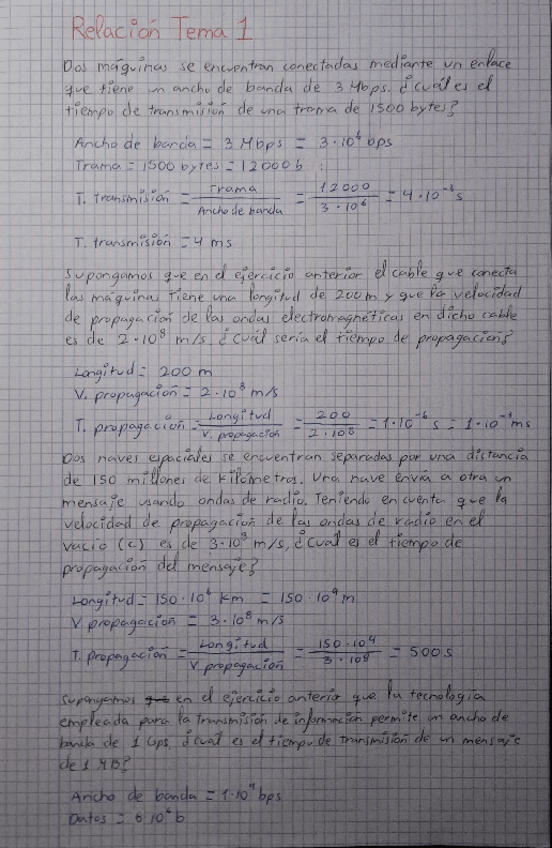 Relación Tema 1
Dos máquinas se encuentran conectadas mediante un enlace
que tiene un ancho de banda de 3 Mbps. ¿Cuál es el
tiempo de transmisión de una trama de 1500 bytes?
Ancho de banda = 3 Mbps = 3·10⁶ bps
Trama = 1500 bytes = 12000 b
T. transmisión = Trama / Ancho de banda = 12000 / 3·10⁶ = 4·10⁻³ s
T. transmisión = 4 ms
Supongamos que en el ejercicio anterior el cable que conecta
las máquinas tiene una longitud de 200 m y que la velocidad
de propagación de las ondas electromagnéticas en dicho cable
es de 2·10⁸ m/s, ¿cuál sería el tiempo de propagación?
Longitud = 200 m
V. propagación = 2·10⁸ m/s
T. propagación = Longitud / V. propagación = 200 / 2·10⁸ = 1·10⁻⁶ s = 1·10⁻³ ms
Dos naves espaciales se encuentran separadas por una distancia
de 150 millones de kilómetros. Una nave envía a otra un
mensaje usando ondas de radio. Teniendo en cuenta que la
velocidad de propagación de las ondas de radio en el
vacío (c) es de 3·10⁸ m/s, ¿Cuál es el tiempo de
propagación del mensaje?
Longitud = 150·10⁶ km = 150·10⁹ m
V propagación = 3·10⁸ m/s
T. propagación = Longitud / V propagación = 150·10⁹ / 3·10⁸ = 500 s
Supongamos en el ejercicio anterior que la tecnología
empleada para la transmisión de información permite un ancho de
banda de 1 Gps, ¿cuál es el tiempo de transmisión de un mensaje
de 1 MB?
Ancho de banda = 1·10⁹ bps
Datos = 10⁶ b